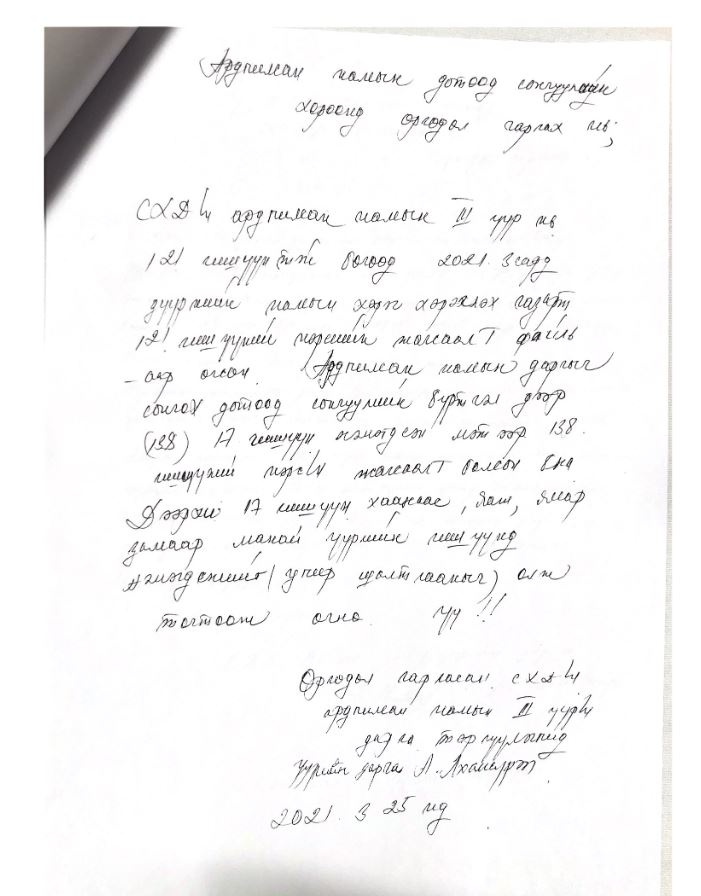 Ардчилсан намын дотоод сонгуулийн
хороонд өргөдөл гаргах нь;
СХД-н ардчилсан намын III үүр нь
121 гишүүнтэй бөгөөд 2021. 3 сард
дүүргийн намын хэрэг хэрэглэх газарт
121 гишүүний нэрсийн жагсаалт файл
-аар өгсөн. Ардчилсан намын даргыг
сонгох дотоод сонгуулийн бүртгэл дээр
(138) 17 гишүүн нэмэгдсэн мэтээр 138.
гишүүний нэрсийн жагсаалт болсон бна
Дээрхи 17 гишүүн хаанаас, яаж, ямар
замаар манай үүрийн гишүүнд
нэмэгдснийг (учир шалтгааныг) олж
тогтоож өгнө үү!!
Өргөдөл гаргасан СХД-н
ардчилсан намын III үүрийн
дарга төлөөлүүлэгчид
Үүрийн дарга Л.
2021. 3 25 нд